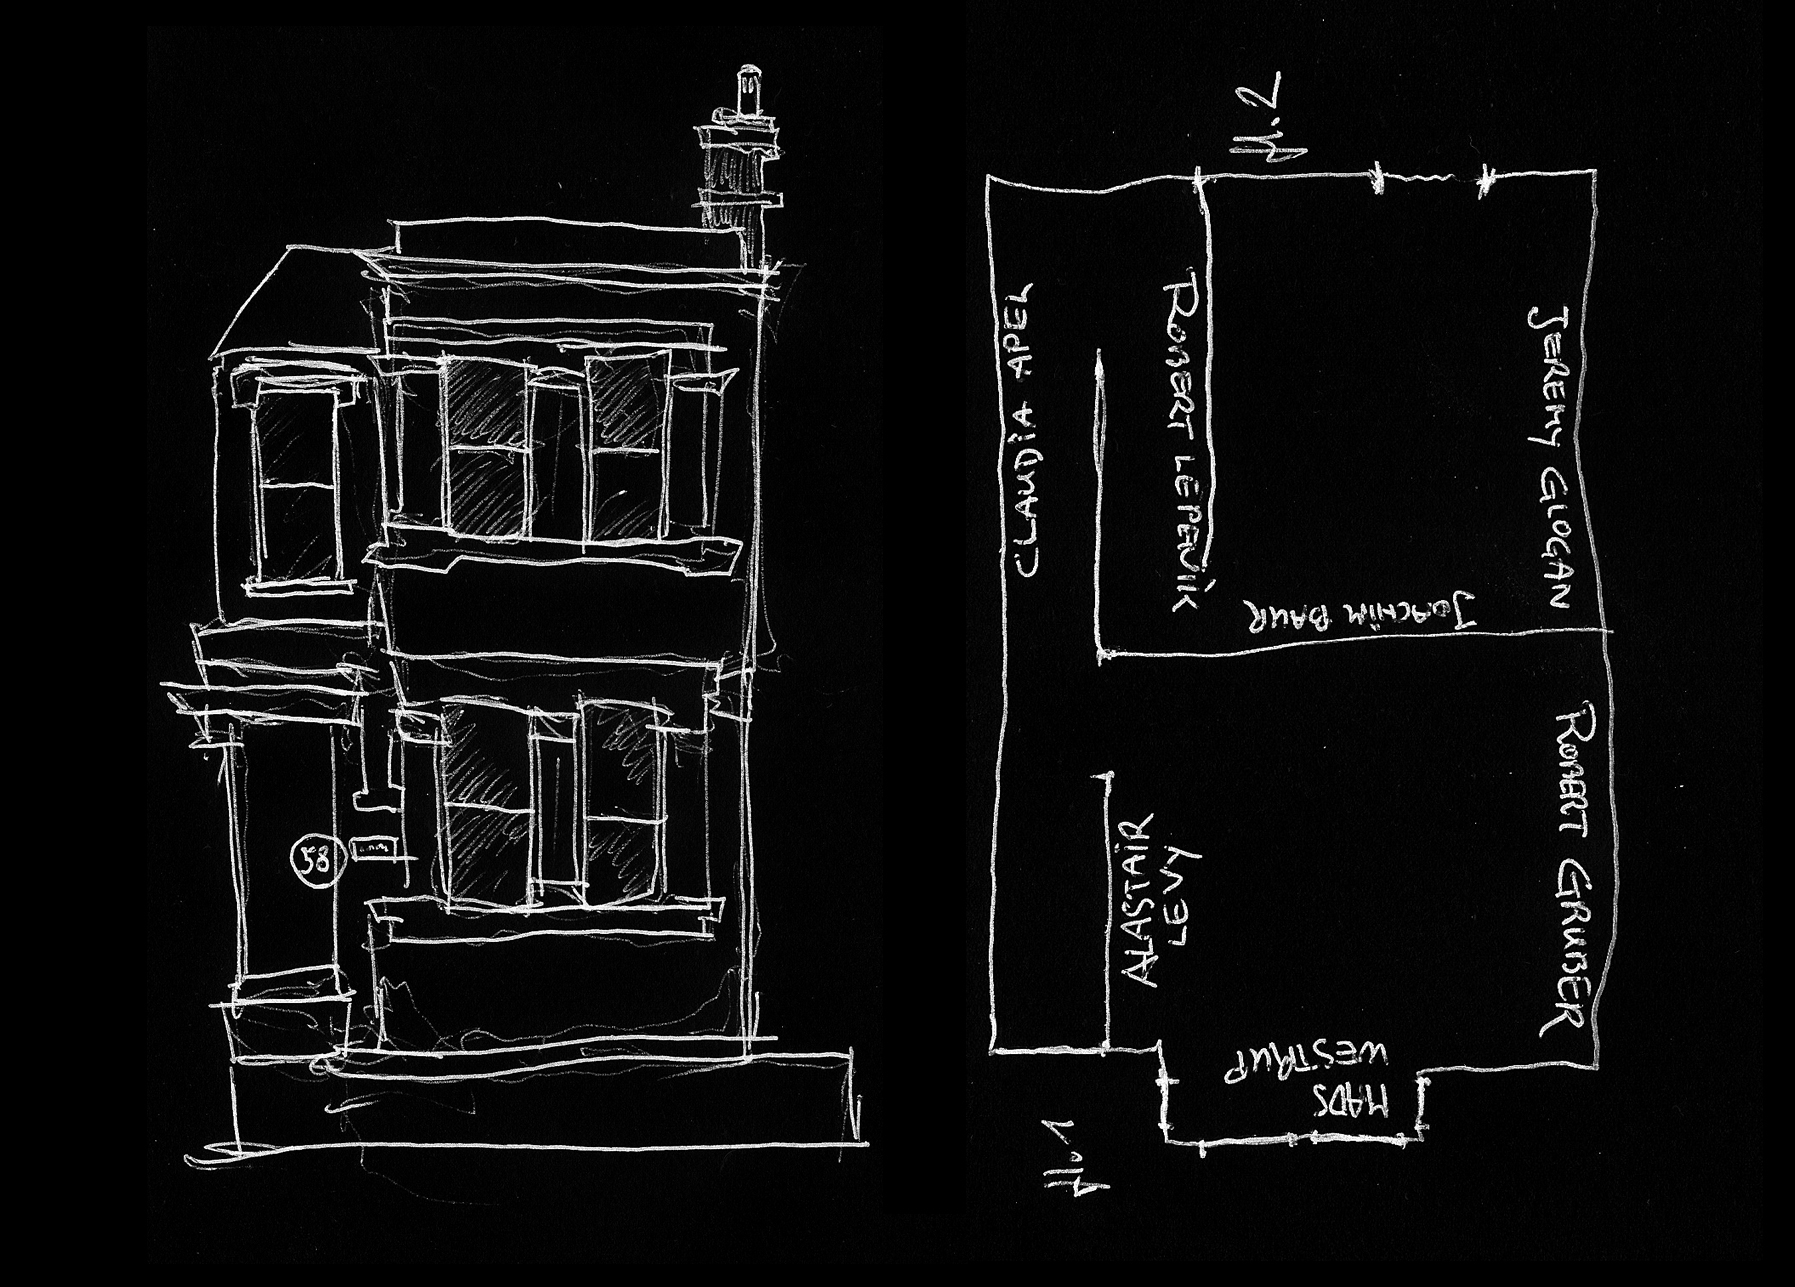 58
H.2
CLAUDIA APEL
ROBERT LEPENIK
JEREMY GLOGAN
JOACHIM BAUR
ROBERT GRUBER
ALASTAIR
LEVY
MADS
WESTRUP
H.1